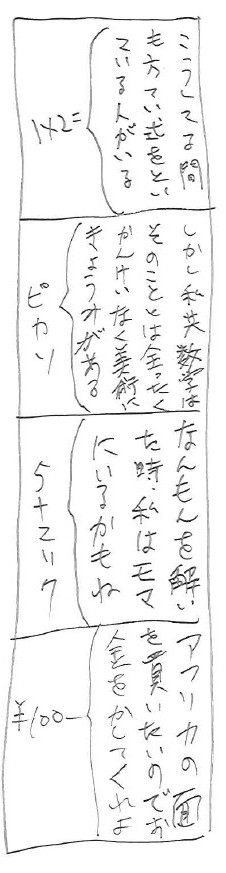 こうしてる間
も方てい式をとい
ている人がいる
1×2=
しかし私共数学は
そのこととは全ったく
かんけいなく美術に
きょうみがある
ピカソ
なんもんを解い
た時、私はモマ
にいるかもね
5+2=リク
アフリカの面
を買いたいのでお
金をかしてくれよ
¥100-